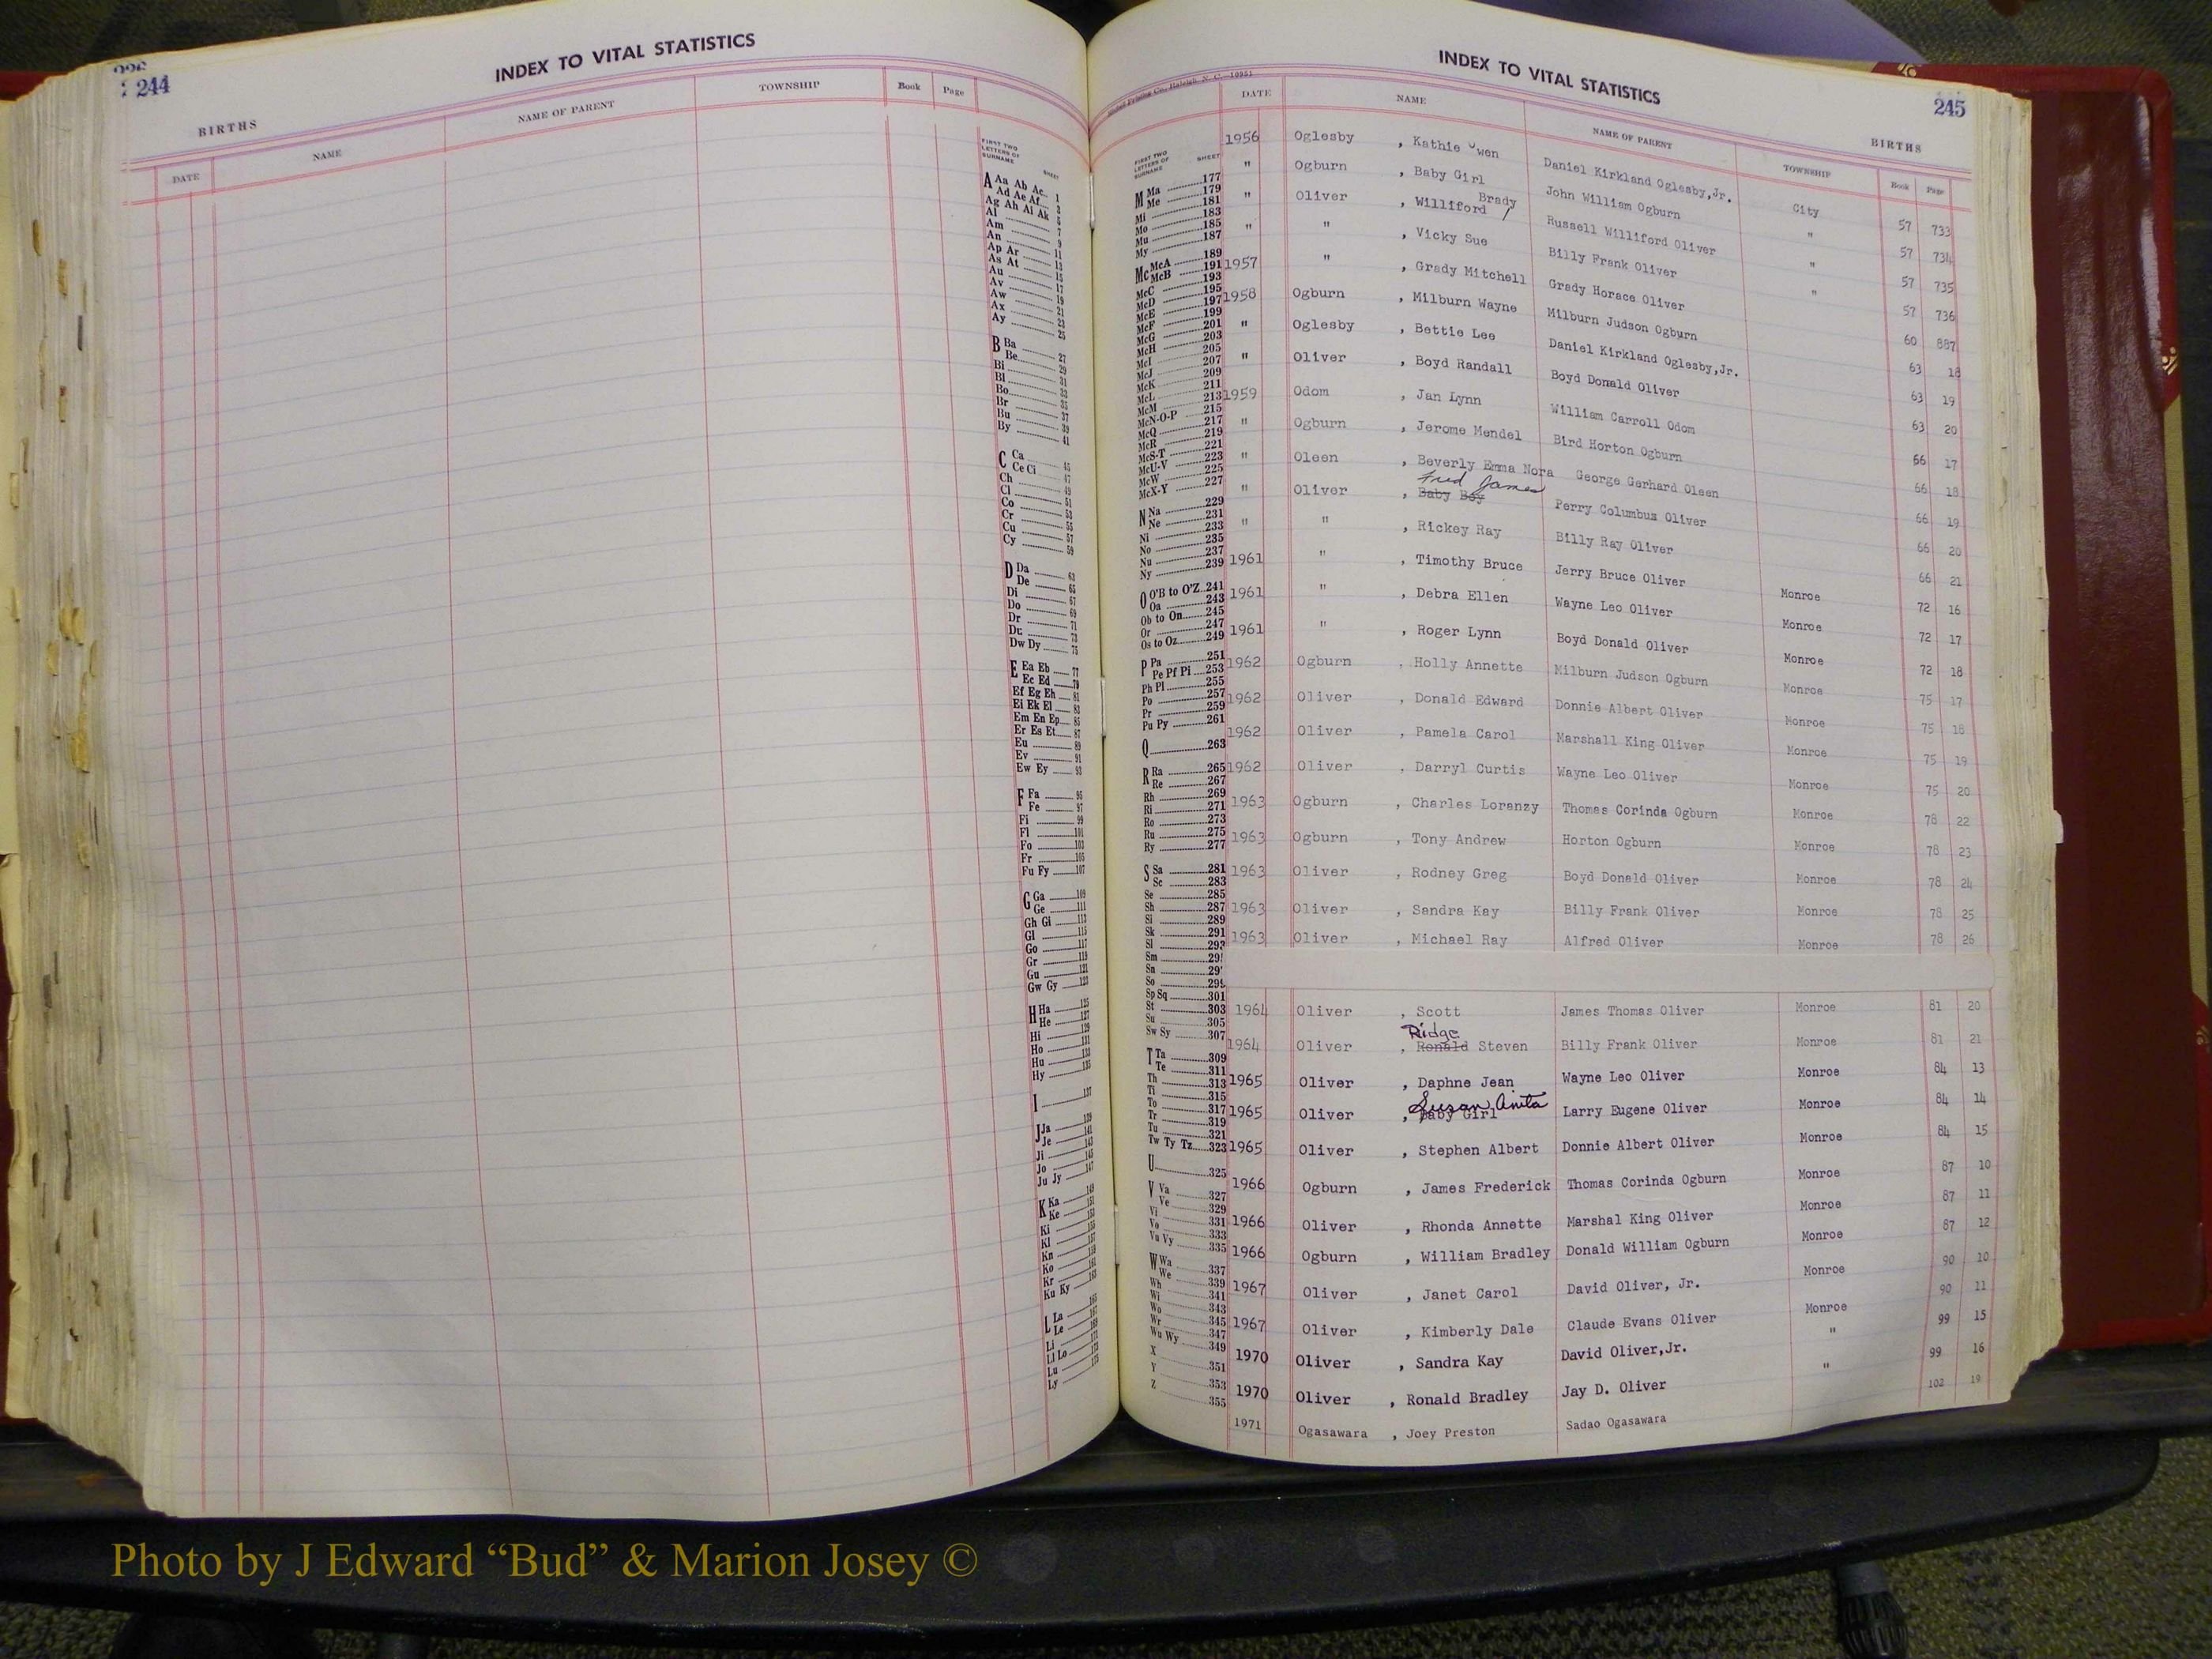 244
INDEX TO VITAL STATISTICS
BIRTHS
DATE NAME NAME OF PARENT TOWNSHIP Book Page
FIRST TWO LETTERS OF SURNAME SHEET
A Aa Ab Ac 1
Ad Ae Af 3
Ag Ah Ai Ak 5
Al 7
Am 9
An 11
Ap Ar 13
As At 15
Au 17
Av 19
Aw 21
Ax 23
Ay 25
B Ba 27
Be 29
Bi 31
Bl 33
Bo 35
Br 37
Bu 39
By 41
C Ca 45
Ce Ci 47
Ch 49
Cl 51
Co 53
Cr 55
Cu 57
Cy 59
D Da 63
De 65
Di 67
Do 69
Dr 71
Du 73
Dw Dy 75
E Ea Eb 77
Ec Ed 79
Ef Eg Eh 81
Ei Ek El 83
Em En Ep 85
Er Es Et 87
Eu 89
Ev 91
Ew Ey 93
F Fa 95
Fe 97
Fi 99
Fl 101
Fo 103
Fr 105
Fu Fy 107
G Ga 109
Ge 111
Gh Gi 113
Gl 115
Go 117
Gr 119
Gu 121
Gw Gy 123
H Ha 125
He 127
Hi 129
Ho 131
Hu 133
Hy 135
I 137
J Ja 139
Je 141
Ji 143
Jo 145
Ju Jy 147
K Ka 149
Ke 151
Ki 153
Kl 155
Kn 157
Ko 159
Kr 161
Ku Ky 163
L La 165
Le 167
Li 169
Ll Lo 171
Lu 173
Ly 175
INDEX TO VITAL STATISTICS
245
BIRTHS
DATE NAME NAME OF PARENT TOWNSHIP Book Page
FIRST TWO LETTERS OF SURNAME SHEET
M Ma 177
Me 179
Mi 181
Mo 183
Mu 185
My 187
Mc McA 189
McB 191
McC 193
McD 195
McE 197
McF 199
McG 201
McH 203
McI 205
McJ 207
McK 209
McL 211
McM 213
McN-O-P 215
McQ 217
McR 219
McS-T 221
McU-V 223
McW 225
McX-Y 227
N Na 229
Ne 231
Ni 233
No 235
Nu 237
Ny 239
O O'B to O'Z 241
Oa 243
Ob to On 245
Or 247
Os to Oz 249
P Pa 251
Pe Pf Pi 253
Ph Pl 255
Po 257
Pr 259
Pu Py 261
Q 263
R Ra 265
Re 267
Rh 269
Ri 271
Ro 273
Ru 275
Ry 277
S Sa 281
Sc 283
Se 285
Sh 287
Si 289
Sk 291
Sl 293
Sm
Sn
So
Sp Sq 301
St 303
Su 305
Sw Sy 307
T Ta 309
Te 311
Th 313
Ti 315
To 317
Tr 319
Tu 321
Tw Ty Tz 323
U 325
V Va 327
Ve 329
Vi 331
Vo 333
Vu Vy 335
W Wa 337
We 339
Wh 341
Wi 343
Wo 345
Wr 347
Wu Wy 349
X 351
Y 353
Z 355
1956 Oglesby , Kathie Owen Daniel Kirkland Oglesby,Jr. City 57 733
" Ogburn , Baby Girl John William Ogburn " 57 734
" Oliver , Williford / Brady Russell Williford Oliver " 57 735
" " , Vicky Sue Billy Frank Oliver " 57 736
1957 " , Grady Mitchell Grady Horace Oliver 60 887
1958 Ogburn , Milburn Wayne Milburn Judson Ogburn 63 18
" Oglesby , Bettie Lee Daniel Kirkland Oglesby,Jr. 63 19
" Oliver , Boyd Randall Boyd Donald Oliver 63 20
1959 Odom , Jan Lynn William Carroll Odom 66 17
" Ogburn , Jerome Mendel Bird Horton Ogburn 66 18
" Oleen , Beverly Emma Nora George Gerhard Oleen 66 19
" Oliver , Baby Boy Fred James Perry Columbus Oliver 66 20
" " , Rickey Ray Billy Ray Oliver 66 21
1961 " , Timothy Bruce Jerry Bruce Oliver Monroe 72 16
1961 " , Debra Ellen Wayne Leo Oliver Monroe 72 17
1961 " , Roger Lynn Boyd Donald Oliver Monroe 72 18
1962 Ogburn , Holly Annette Milburn Judson Ogburn Monroe 75 17
1962 Oliver , Donald Edward Donnie Albert Oliver Monroe 75 18
1962 Oliver , Pamela Carol Marshall King Oliver Monroe 75 19
1962 Oliver , Darryl Curtis Wayne Leo Oliver Monroe 75 20
1963 Ogburn , Charles Loranzy Thomas Corinda Ogburn Monroe 78 22
1963 Ogburn , Tony Andrew Horton Ogburn Monroe 78 23
1963 Oliver , Rodney Greg Boyd Donald Oliver Monroe 78 24
1963 Oliver , Sandra Kay Billy Frank Oliver Monroe 78 25
1963 Oliver , Michael Ray Alfred Oliver Monroe 78 26
1964 Oliver , Scott James Thomas Oliver Monroe 81 20
1964 Oliver , Ridge Ronald Steven Billy Frank Oliver Monroe 81 21
1965 Oliver , Daphne Jean Wayne Leo Oliver Monroe 84 13
1965 Oliver , Baby Girl Susan Anita Larry Eugene Oliver Monroe 84 14
1965 Oliver , Stephen Albert Donnie Albert Oliver Monroe 84 15
1966 Ogburn , James Frederick Thomas Corinda Ogburn Monroe 87 10
1966 Oliver , Rhonda Annette Marshal King Oliver Monroe 87 11
1966 Ogburn , William Bradley Donald William Ogburn Monroe 87 12
1967 Oliver , Janet Carol David Oliver, Jr. Monroe 90 10
1967 Oliver , Kimberly Dale Claude Evans Oliver Monroe 90 11
1970 Oliver , Sandra Kay David Oliver,Jr. " 99 15
1970 Oliver , Ronald Bradley Jay D. Oliver " 99 16
1971 Ogasawara , Joey Preston Sadao Ogasawara 102 19
Photo by J Edward “Bud” & Marion Josey ©